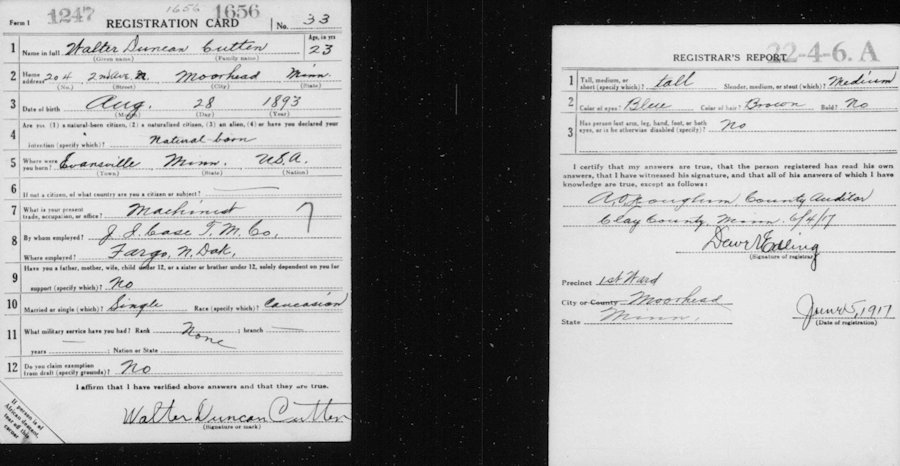 1247 1656 1656
Form 1 REGISTRATION CARD No. 33
1 Name in full Walter Duncan Cutten Age, in yrs 23
(Given name) (Family name)
2 Home address 204 2nd Ave. N. Moorhead Minn.
(No.) (Street) (City) (State)
3 Date of birth Aug. 28 1893
(Month) (Day) (Year)
4 Are you (1) a natural-born citizen, (2) a naturalized citizen, (3) an alien, (4) or have you declared your
intention (specify which)? Natural-born
5 Where were you born? Evansville Minn. USA.
(Town) (State) (Nation)
6 If not a citizen, of what country are you a citizen or subject?
7 What is your present trade, occupation, or office? Machinist 7
8 By whom employed? J. I. Case T. M. Co.
Where employed? Fargo, N. Dak.
9 Have you a father, mother, wife, child under 12, or a sister or brother under 12, solely dependent on you for
support (specify which)? No
10 Married or single (which)? Single Race (specify which)? Caucasion
11 What military service have you had? Rank None ; branch
years ; Nation or State
12 Do you claim exemption from draft (specify grounds)? No
I affirm that I have verified above answers and that they are true.
Walter Duncan Cutten
(Signature or mark)
If person is of
African descent,
tear off this
corner
22-4-6. A
REGISTRAR'S REPORT
1 Tall, medium, or short (specify which)? tall Slender, medium, or stout (which)? Medium
2 Color of eyes? Blue Color of hair? Brown Bald? No
3 Has person lost arm, leg, hand, foot, or both eyes, or is he otherwise disabled (specify)? No
I certify that my answers are true, that the person registered has read his own
answers, that I have witnessed his signature, and that all of his answers of which I have
knowledge are true, except as follows:
County Auditor
Clay County, Minn. 6/4/17
(Signature of registrar)
Precinct 1st Ward
City or County Moorhead
State Minn.
June 5, 1917
(Date of registration)